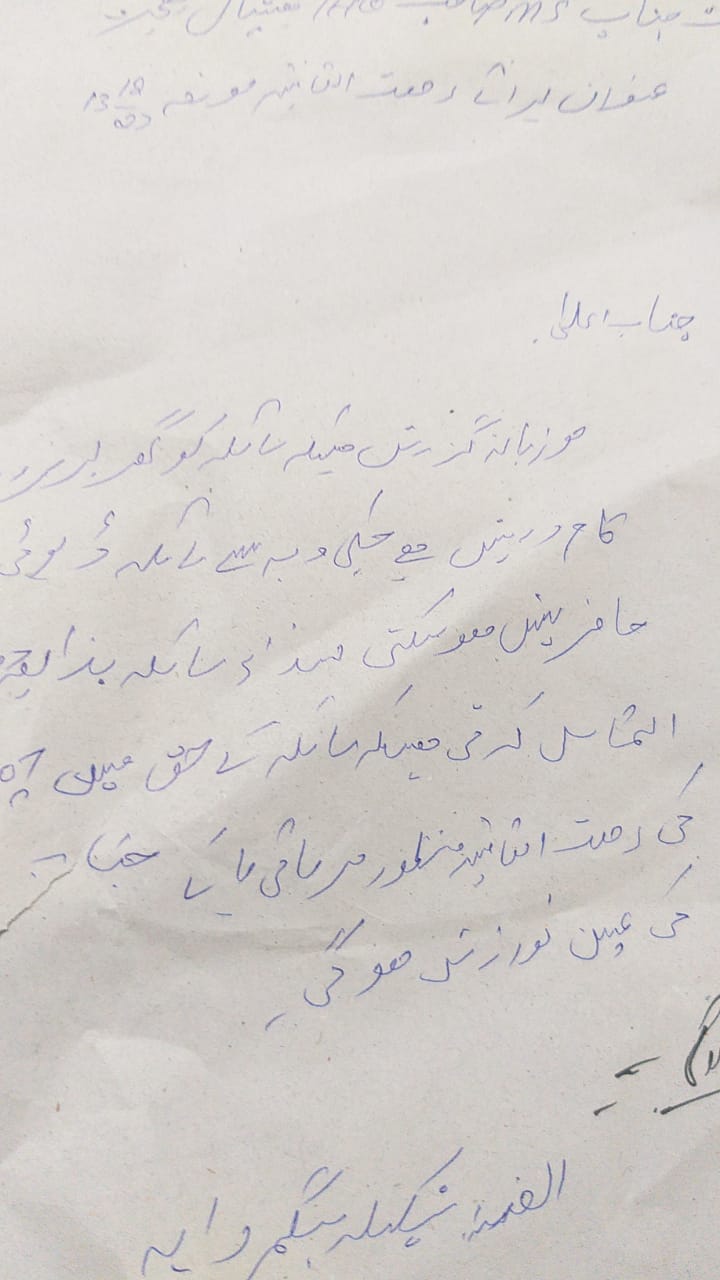 جناب MS صاحب
عنوان برائے رخصت اتفاقیہ مورخہ
جناب اعلیٰ
موزبانہ گزرش ھیکہ سائلہ کو گھر
کام درپیش ھے جسکی وجہ سے سائلہ ڈیوٹی
حاضر نہیں ھوسکتی لہذا سائلہ
التماس کرتی ھیکہ سائلہ کے حق میں
کی رخصت اتفاقیہ منظور فرمائی جائے جناب
کی عین نوازش ھو گی
العارضہ شکیلہ بیگم دایہ